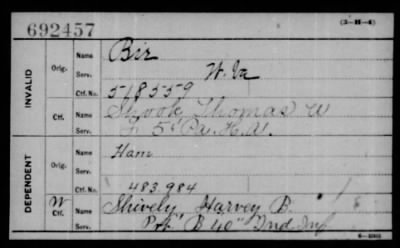 692457
(3-H-4)
INVALID
Orig.
Name Bir
Serv. W. Va
Ctf. No. 518559
Ctf.
Name Shook Thomas W
Serv. F 5" Pa. H.A.
DEPENDENT
Orig.
Name Ham
Serv.
Ctf. No. 483.984
W
Ctf.
Name Shively Harvey B.
Serv. Pvt "B 40" Ind Inf